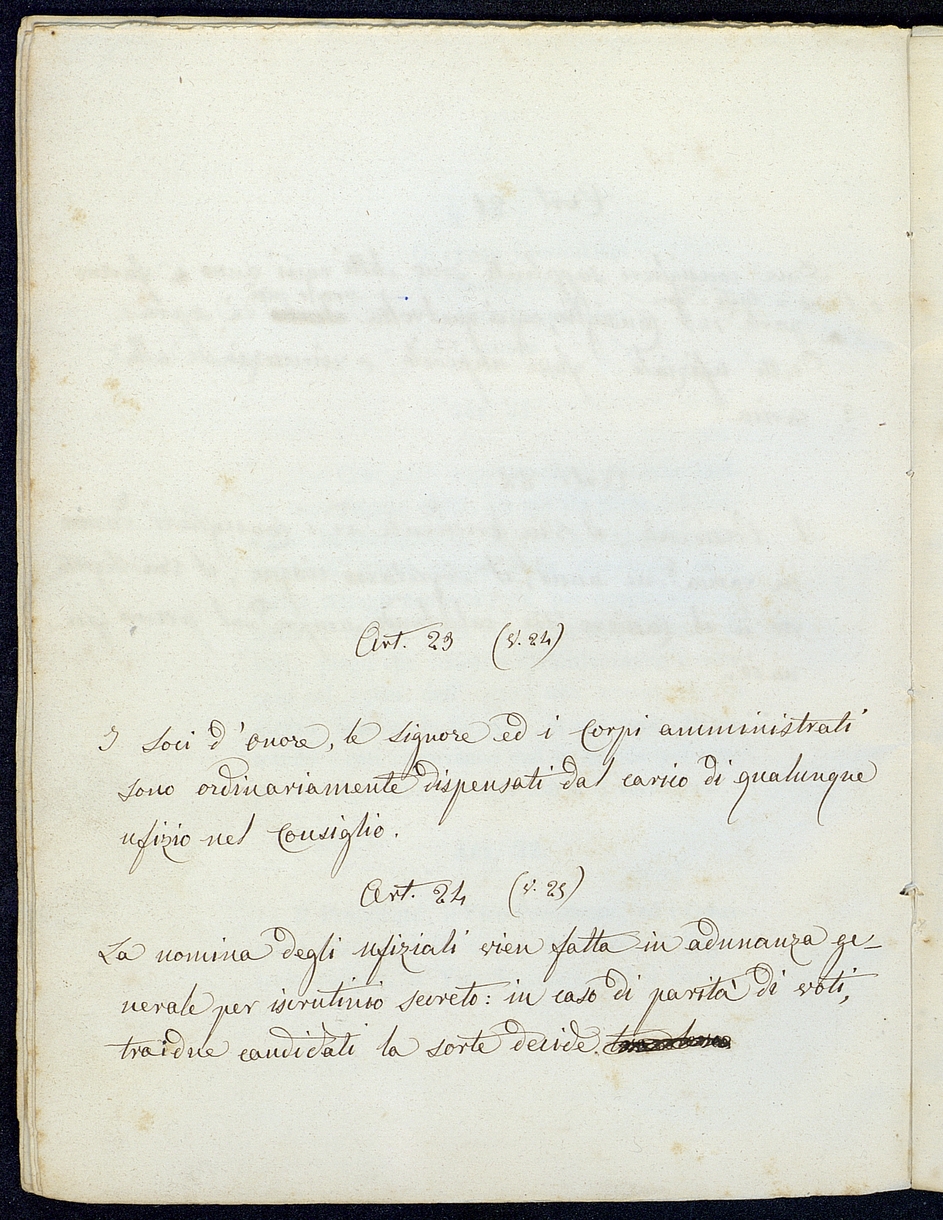 Art. 23 (v. 24)
I soci d'onore, le signore ed i Corpi amministrati
sono ordinariamente dispensati dal carico di qualunque
ufizio nel Consiglio.
Art. 24 (v. 25)
La nomina degli ufiziali vien fatta in adunanza ge-
nerale per iscrutinio secreto: in caso di parità di voti,
tra i due candidati la sorte decide.